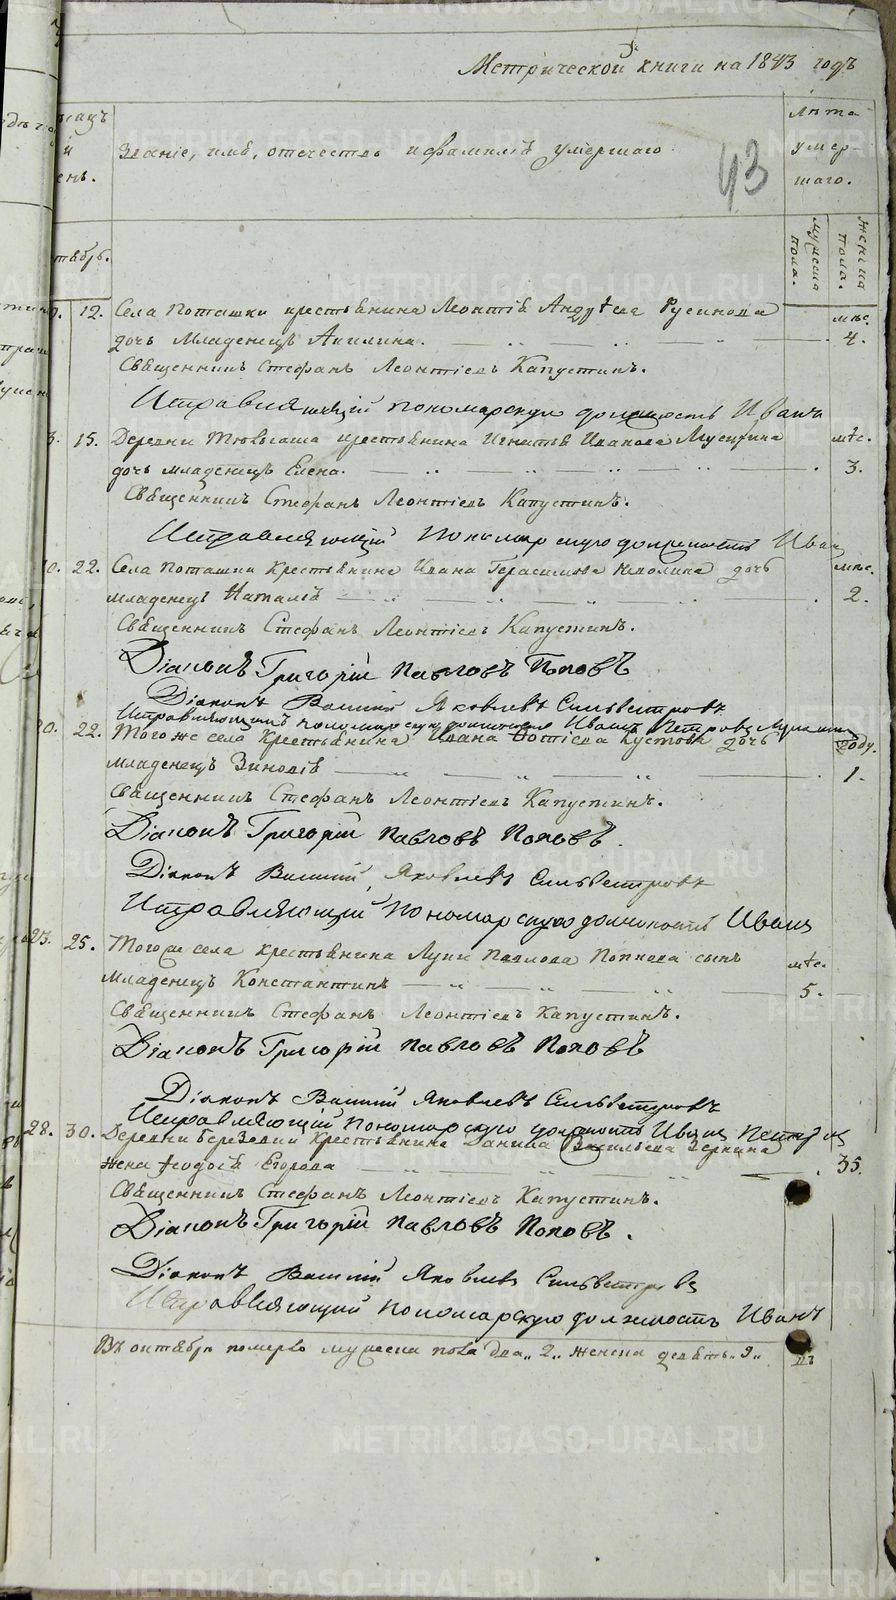 Метрической книги на 1843 годъ
Званіе, имѣ, отечество и фамилiѣ умершаго.
Лѣта
умер-
шаго.
43
мужеска пола.
женска пола.
12. Села Поташки крестьѣнина Леонтіѣ Русинова
мѣс.
дочь Младенецъ Акилина. 4.
Свѣщенникъ Стефанъ Леонтіевъ Капустинъ.
Исправляющій пономарскую должность Иванъ
15. Деревни крестьѣнина Игнатьѣ Иванова
мѣс.
дочь младенецъ Елена. 3.
Свѣщенникъ Стефанъ Леонтіевъ Капустинъ.
Исправляющій пономарскую должность Иван
22. Села Поташки крестьѣнина Ивана Герасимова дочь
мѣс.
младенецъ Наталіѣ 2.
Свѣщенникъ Стефанъ Леонтіевъ Капустинъ.
Діаконъ Григорій Павловъ Поповъ
Діаконъ Василий Яковлевъ Сильвестровъ
Исправляющий пономарскую должность Иванъ Петровъ
22. Того же села крестьѣнина Ивана дочь
году.
младенецъ Зиновіѣ 1.
Свѣщенникъ Стефанъ Леонтіевъ Капустинъ.
Діаконъ Григорій Павловъ Поповъ.
Діаконъ Василий Яковлевъ Сильвестровъ
Исправляющий пономарскую должность Иванъ
23. 25. Того же села крестьѣнина Луки Павлова сынъ
мѣс.
младенецъ Константинъ 5.
Свѣщенникъ Стефанъ Леонтіевъ Капустинъ.
Діаконъ Григорій Павловъ Поповъ
Діаконъ Василий Яковлевъ Сильвестровъ
Исправляющій пономарскую должность Иванъ Петровъ
28. 30. Деревни Березовки крестьѣнина Данила Васильева Зернина
жена Ѳеодосіѣ Егорова 35.
Свѣщенникъ Стефанъ Леонтіевъ Капустинъ.
Діаконъ Григорій Павловъ Поповъ.
Діаконъ Василий Яковлевъ Сильвестровъ
Исправляющий пономарскую должность Иванъ
Въ октябрѣ померло мужеска пола два „2„ женска девѣть „9„
METRIKI.GASO-URAL.RU